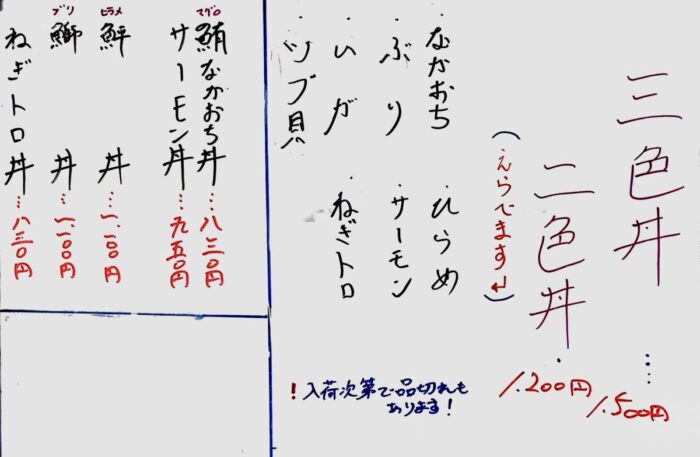 三色丼……1.500円
二色丼…1.200円
(えらべます↵)
・なかおち
・ぶり
・いか
・ツブ貝
・ひらめ
・サーモン
・ねぎトロ
!入荷次第で品切れも
あります!
鮪なかおち丼…八三〇円
マグロ
サーモン丼…九五〇円
鮃丼…一、一〇〇円
ヒラメ
鰤丼…一、一〇〇円
ブリ
ねぎトロ丼…八三〇円